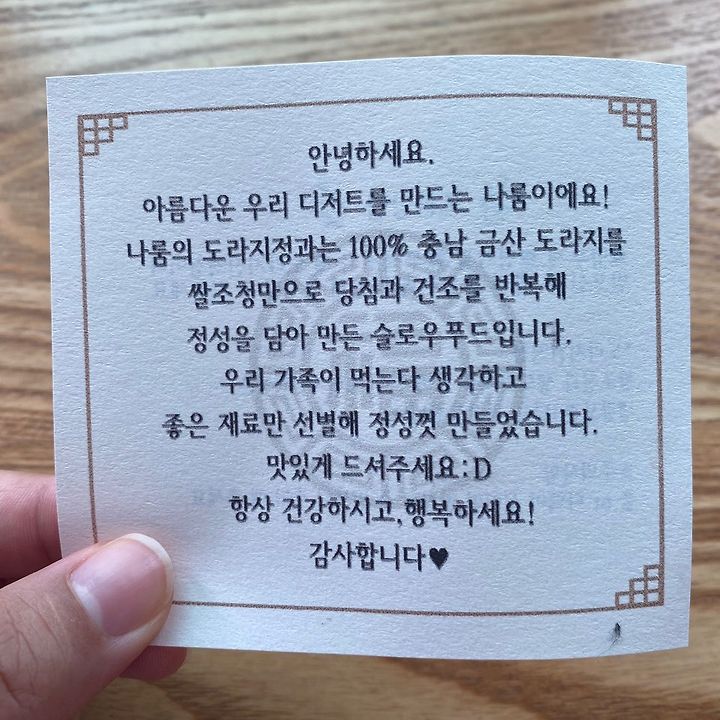 안녕하세요.
아름다운 우리 디저트를 만드는 나룸이에요!
나룸의 도라지정과는 100% 충남 금산 도라지를
쌀조청만으로 당침과 건조를 반복해
정성을 담아 만든 슬로우푸드입니다.
우리 가족이 먹는다 생각하고
좋은 재료만 선별해 정성껏 만들었습니다.
맛있게 드셔주세요:D
항상 건강하시고,행복하세요!
감사합니다♥